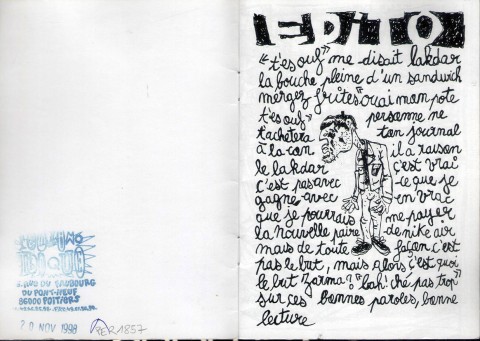 EDITO
"t'es ouf" me disait lakdar
la bouche pleine d'un sandwich
mergez frites "ouai mon pote
t'es ouf" personne ne
t'achetera ton journal
à la con il a raison
le lakdar c'est vrai
c'est pas avec ce que je
gagne avec en vrac
que je pourrais me payer
la nouvelle paire de nike air
mais de toute façon c'est
pas le but, mais alors c'est quoi
le but zarma? "bah! ché pas trop"
sur ces bonnes paroles, bonne
lecture
RUE DU FAUBOURG
DU PONT-NEUF
86000 POITIERS
20 NOV 1998
PER 1857